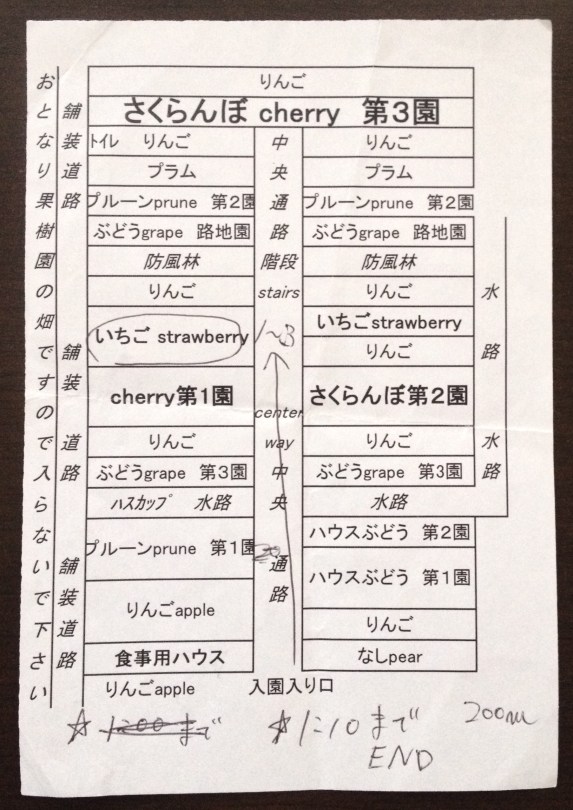 おとなり果樹園の畑ですので入らないで下さい
舗装道路
舗装道路
舗装道路
りんご
さくらんぼ cherry 第3園
トイレ りんご
プラム
プルーンprune 第2園
ぶどうgrape 路地園
防風林
りんご
いちご strawberry
cherry第1園
りんご
ぶどうgrape 第3園
ハスカップ 水路
プルーンprune 第1園
りんごapple
食事用ハウス
りんごapple
中央通路
階段
stairs
1~3
center
way
中央通路
入園入り口
りんご
プラム
プルーンprune 第2園
ぶどうgrape 路地園
防風林
りんご
いちごstrawberry
りんご
さくらんぼ第2園
りんご
ぶどうgrape 第3園
水路
ハウスぶどう 第2園
ハウスぶどう 第1園
りんご
なしpear
水路
水路
☆ 1:00まで
☆ 1:10まで
END
200m